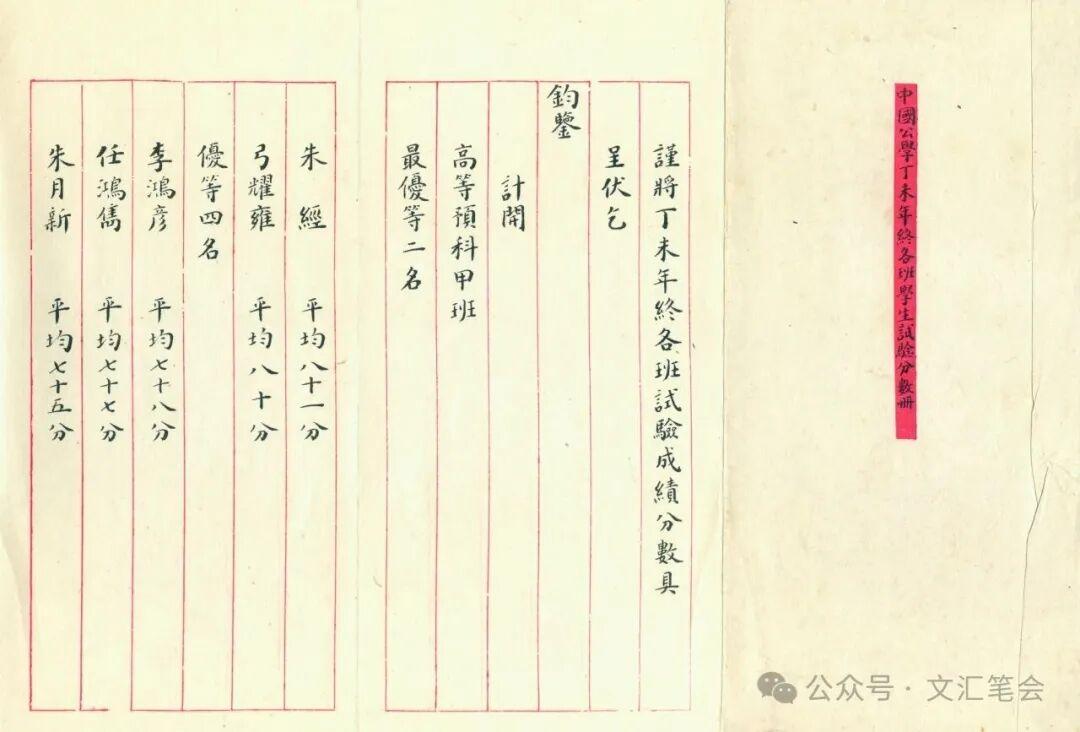 中國公學丁未年終各班學生試驗分數冊
謹將丁未年終各班試驗成績分數具
呈伏乞
鈞鑒
計開
高等預科甲班
最優等二名
朱經 平均八十一分
弓耀雍 平均八十分
優等四名
李鴻彥 平均七十八分
任鴻雋 平均七十七分
朱月新 平均七十五分
公众号·文汇笔会